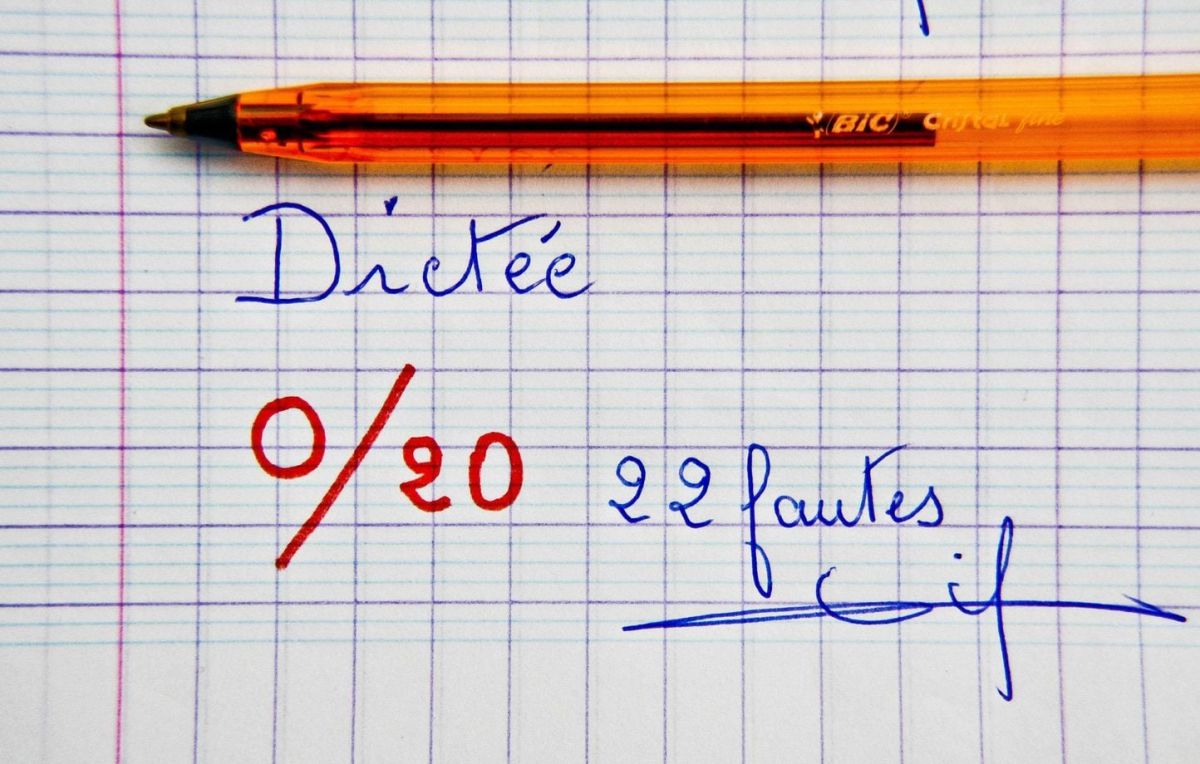 BIC Cristal fine
Dictée
0/20 22 fautes